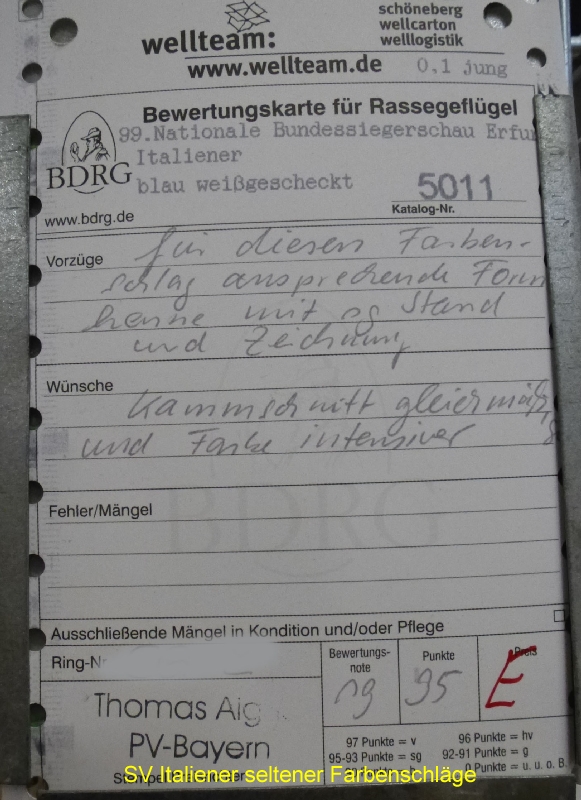 schöneberg
wellcarton
welllogistik
wellteam:
www.wellteam.de
0,1 jung
Bewertungskarte für Rassegeflügel
99.Nationale Bundessiegerschau Erfu
Italiener
BDRG
blau weißgescheckt
5011
Katalog-Nr.
www.bdrg.de
Vorzüge
für diesen Farben-
schlag ansprechende Form
henne mit sg Stand
und Zeichnung
Wünsche
Kammschnitt gleichmäß
und Farbe intensiver
BDRG
Fehler/Mängel
Ausschließende Mängel in Kondition und/oder Pflege
Ring-N
Bewertungs-
note
Punkte
Preis
sg
95
E
Thomas Aig
PV-Bayern
97 Punkte = v
96 Punkte = hv
95-93 Punkte = sg
92-91 Punkte = g
0 Punkte = u. u. o. B.
SV Italiener seltener Farbenschläge